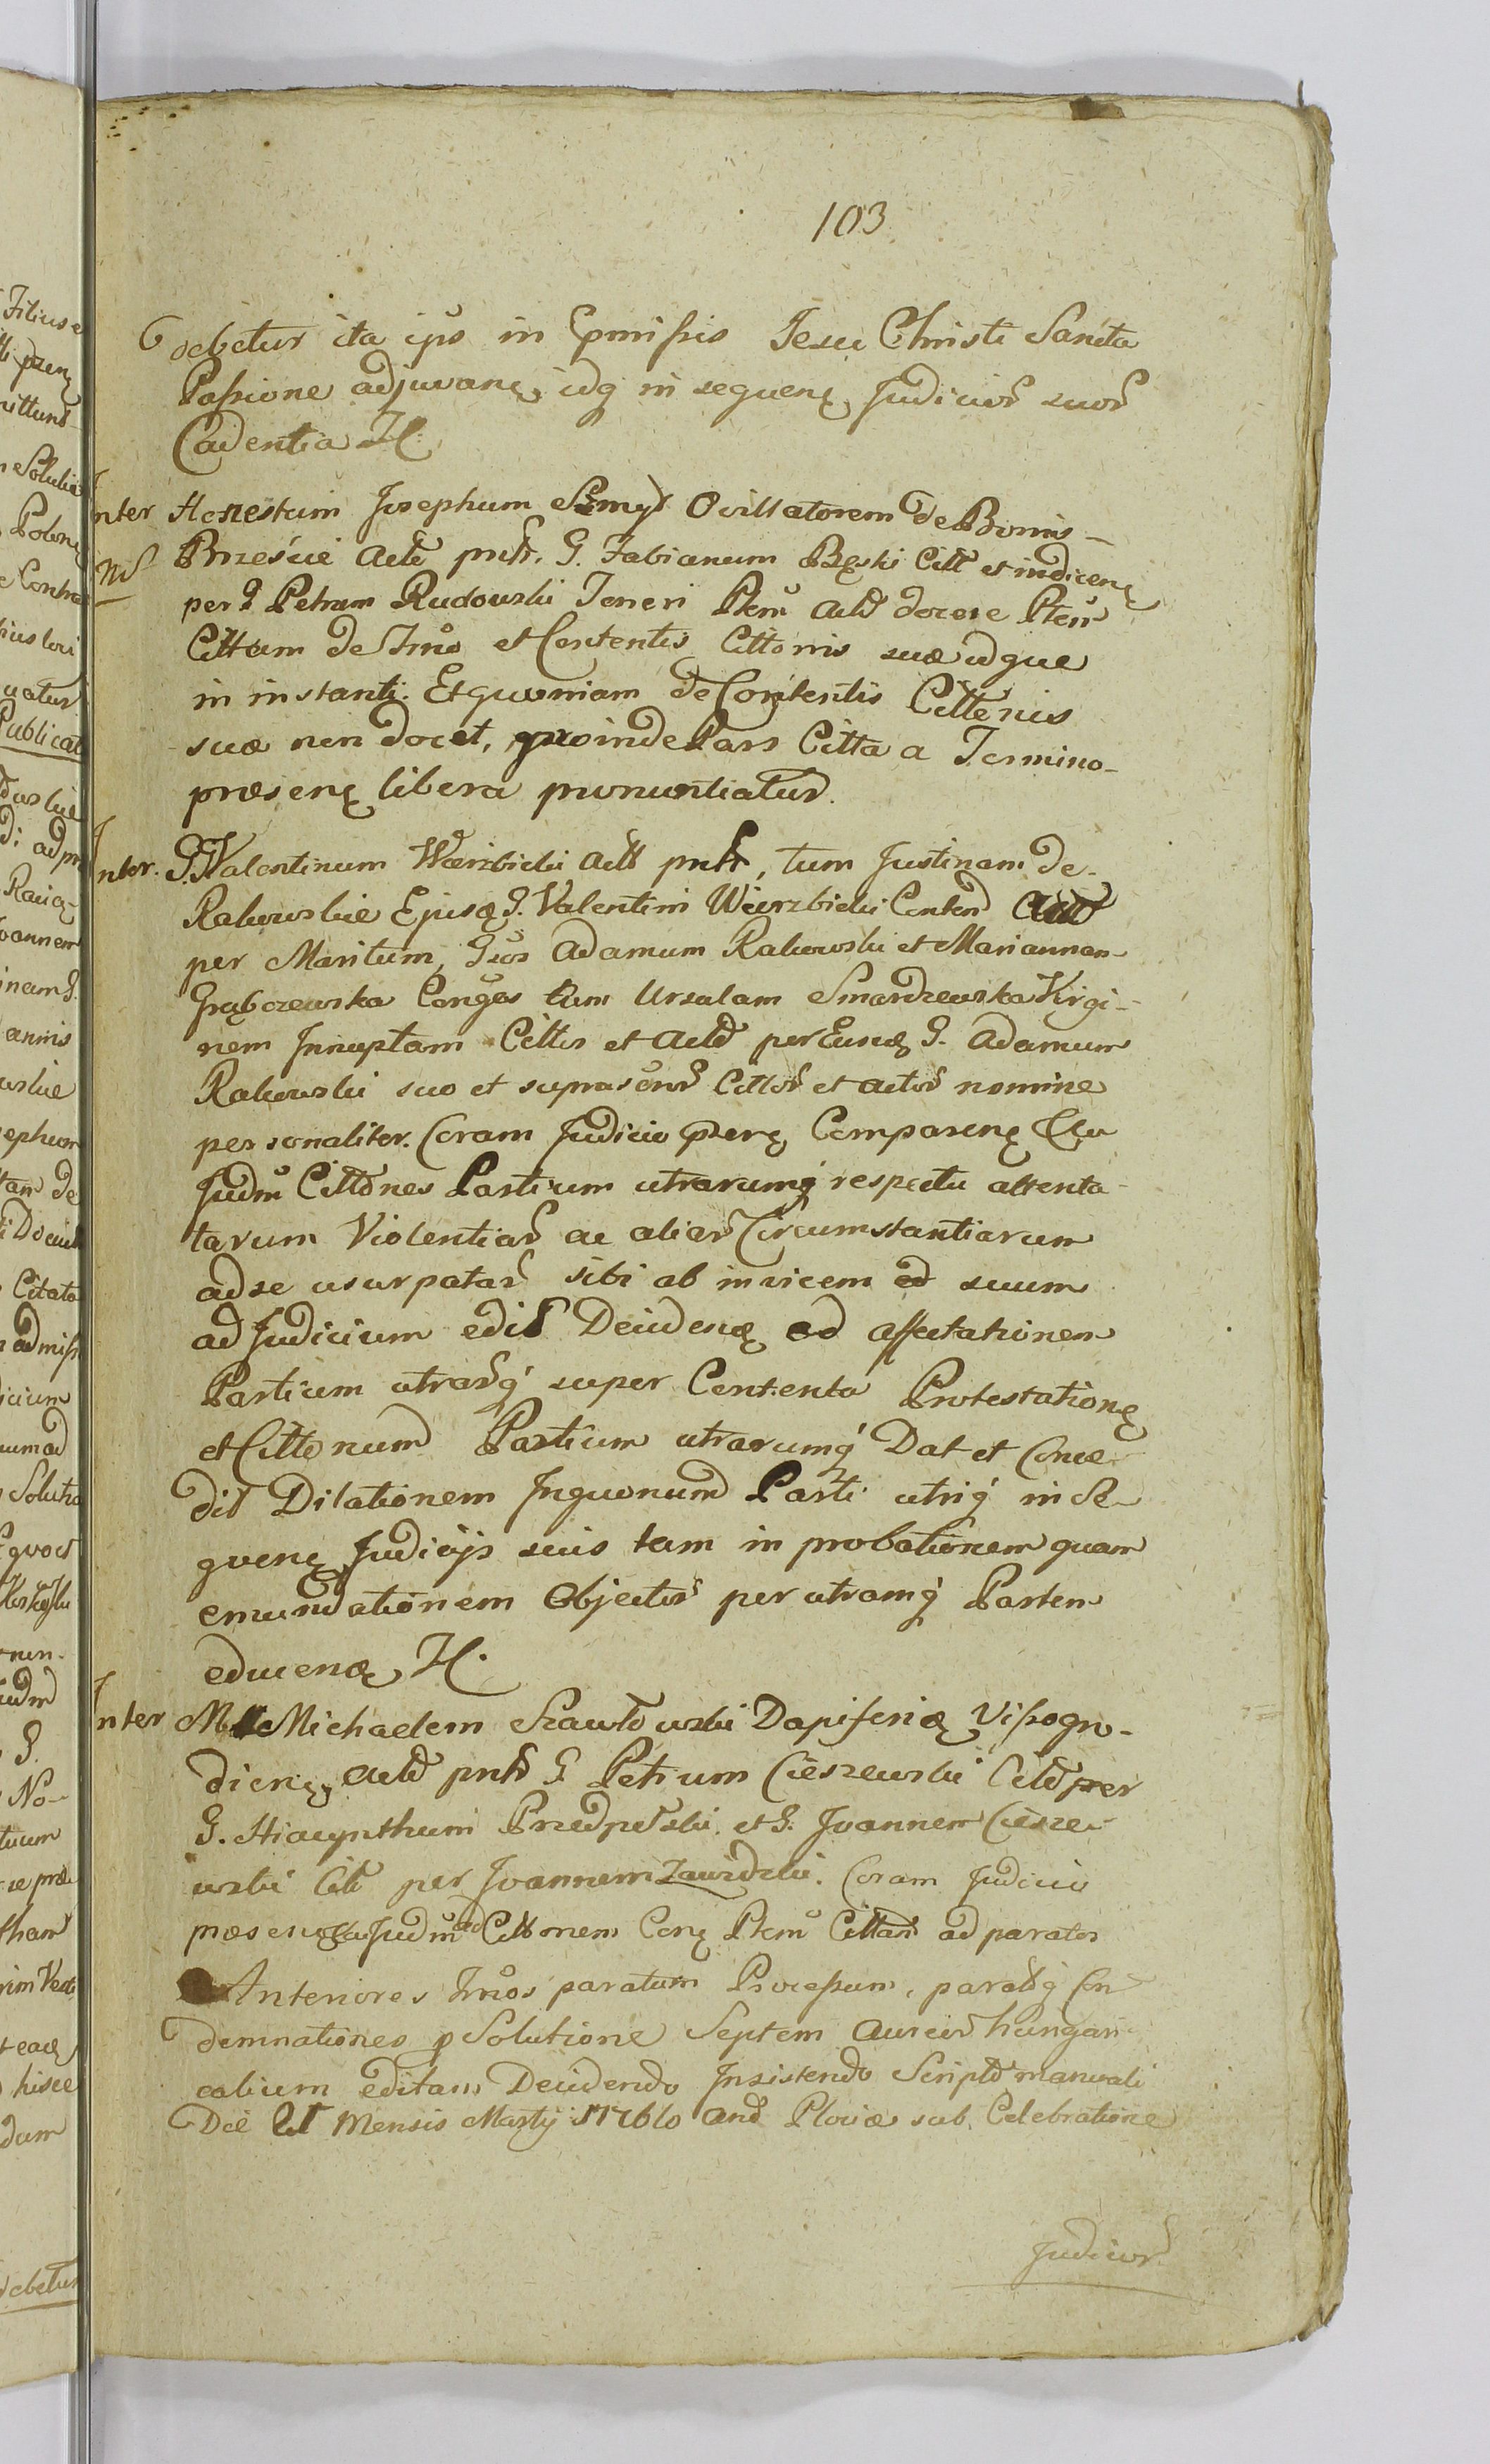 103
debetur ita ejus in Pmissis Jesu Christi Sancta
Passione adjuvanę, idq in seguenę Judicior suor
Cadentia H.
Inter Honestum Josephum Szmyt Ovillatorem de Bonis
Brzeście Actt pntr. G. Fabianum Bęski Citt et indicenę
NS
per G Petrum Rudowski Teneri Ptem Actt docere Ptem
Cittam de Trno et Contentis Cittonis suæ idque
in instanti. Et quoniam de Contentis Cittonis
suæ non docet, proinde Pars Citta a Termino
præsenę libera pronuntiatur.
Inter. G. Valentinum Wierzbicki Actt pntr, tum Justinam de
Rakowskie Ejusę G. Valentini Wierzbicki Conten Actt
per Maritum, Gsos Adamum Rakowski et Mariannam
Grąbczewska Conges tum Ursulam Smardzewska Virgi-
nem Innuptam Cittos et Actt per Eunę G. Adamum
Rakowski suo et suprascr Cittor et Actor nomine
personaliter. Coram Judicio Pzenę Comparenę
Judm Cittones Partium utrarumq respectu attenta-
tarum Violentiar ac aliar Circumstantiarum
ad se usurpatar sibi ab invicem ad suum
ad Judicium edit Decidenę ad affectationem
Partium utrarq super Contenta Protestationę
et Cittonum Partium utrarumq Dat et Conce-
dit Dilationem Inquonum Parti utriq in Se-
quenę Judicijs suis tam in probationem quam
emundationem Objector per utramq Partem
educenę H.
Inter M Michaelem Szawłowski Dapiferię Vissogro-
dienę, Actt pntr G Petrum Cieszewski Citt per
G. Hiacynthum Przedpełski et G. Joannem Ciesze-
wski Citt per Joannem Zawidzki. Coram Judicio
præsenę Judm ad Cittonem Conę Ptem Cittar ad paratos
Anteriores Trnos paratum Processum, paratq Con-
demnationes p Solutione Septem Aureor hungari-
calium editam Decidendo Insistendo Scripto manuali
Die Mensis Martij And Plociæ sub. Celebratione
Judicior